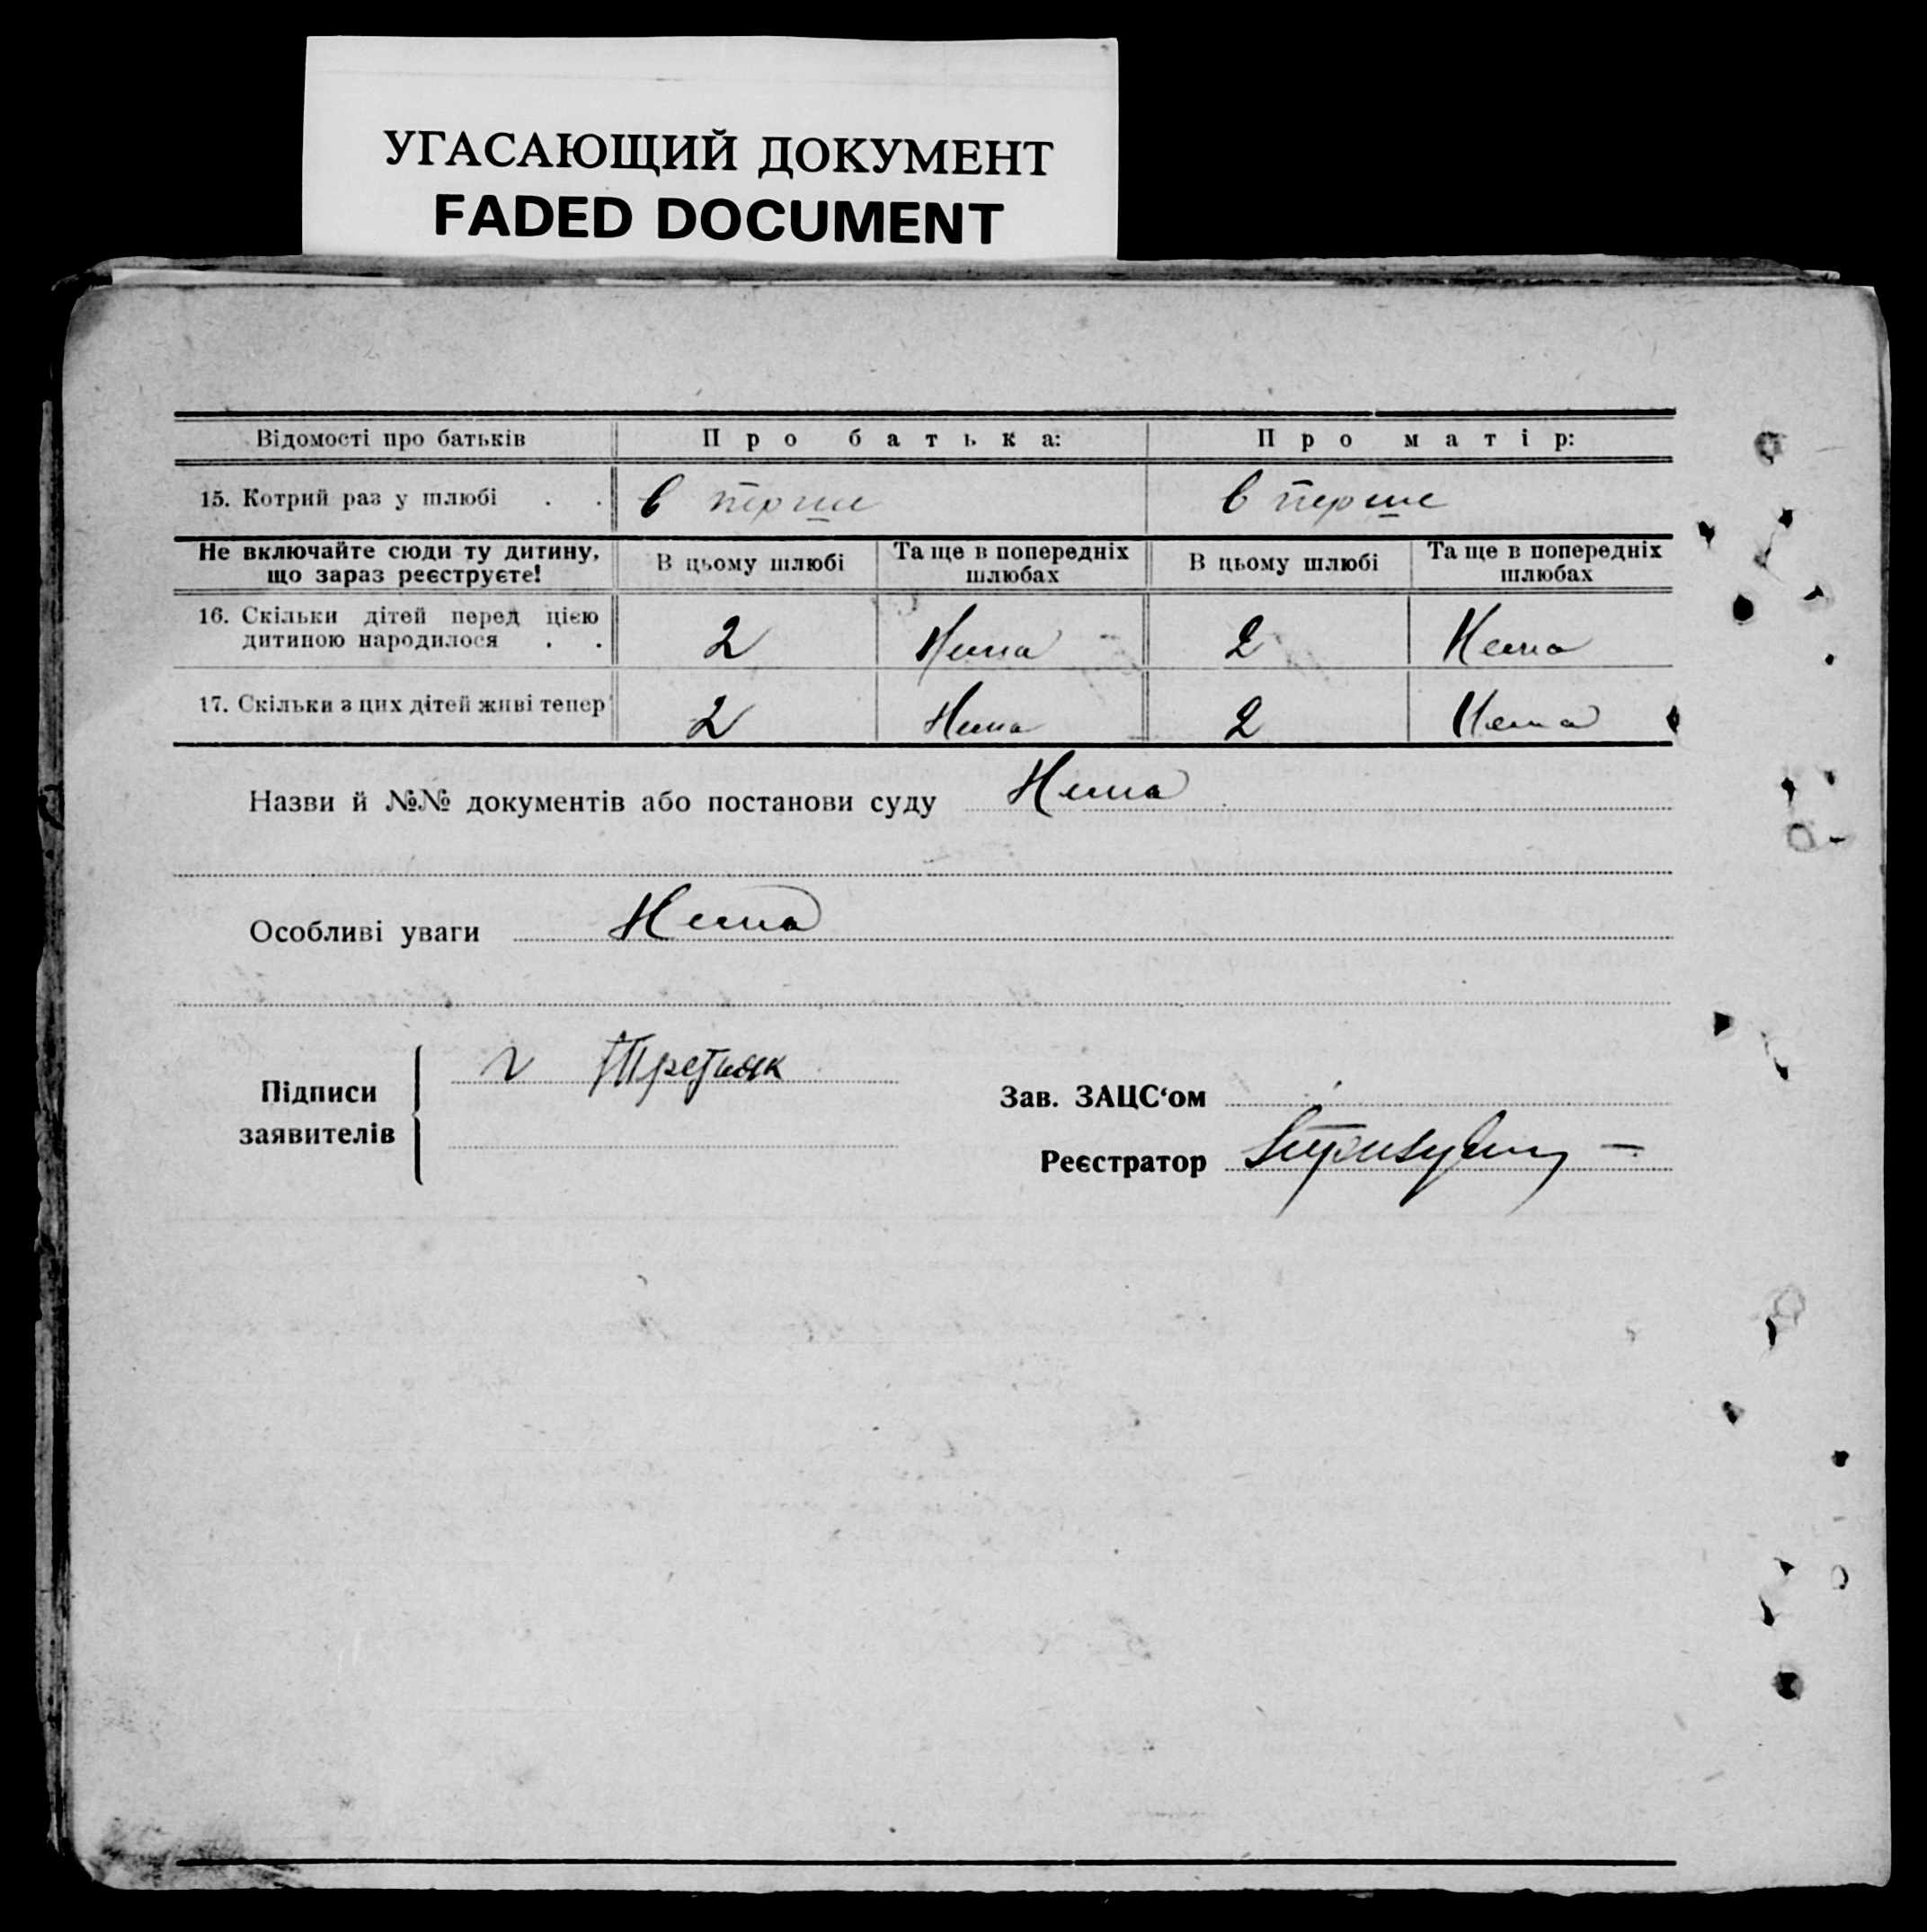 УГАСАЮЩИЙ ДОКУМЕНТ
FADED DOCUMENT
Відомості про батьків Про батька: Про матір:
15. Котрий раз у шлюбі . . в перше в перше
Не включайте сюди ту дитину, що зараз реєструєте! В цьому шлюбі Та ще в попередніх шлюбах В цьому шлюбі Та ще в попередніх шлюбах
16. Скільки дітей перед цією
дитиною народилося . . 2 Нема 2 Нема
17. Скільки з цих дітей живі тепер 2 Нема 2 Нема
Назви й №№ документів або постанови суду Нема
Особливі уваги Нема
Підписи заявителів Третяк
Зав. ЗАЦС‘ом
Реєстратор